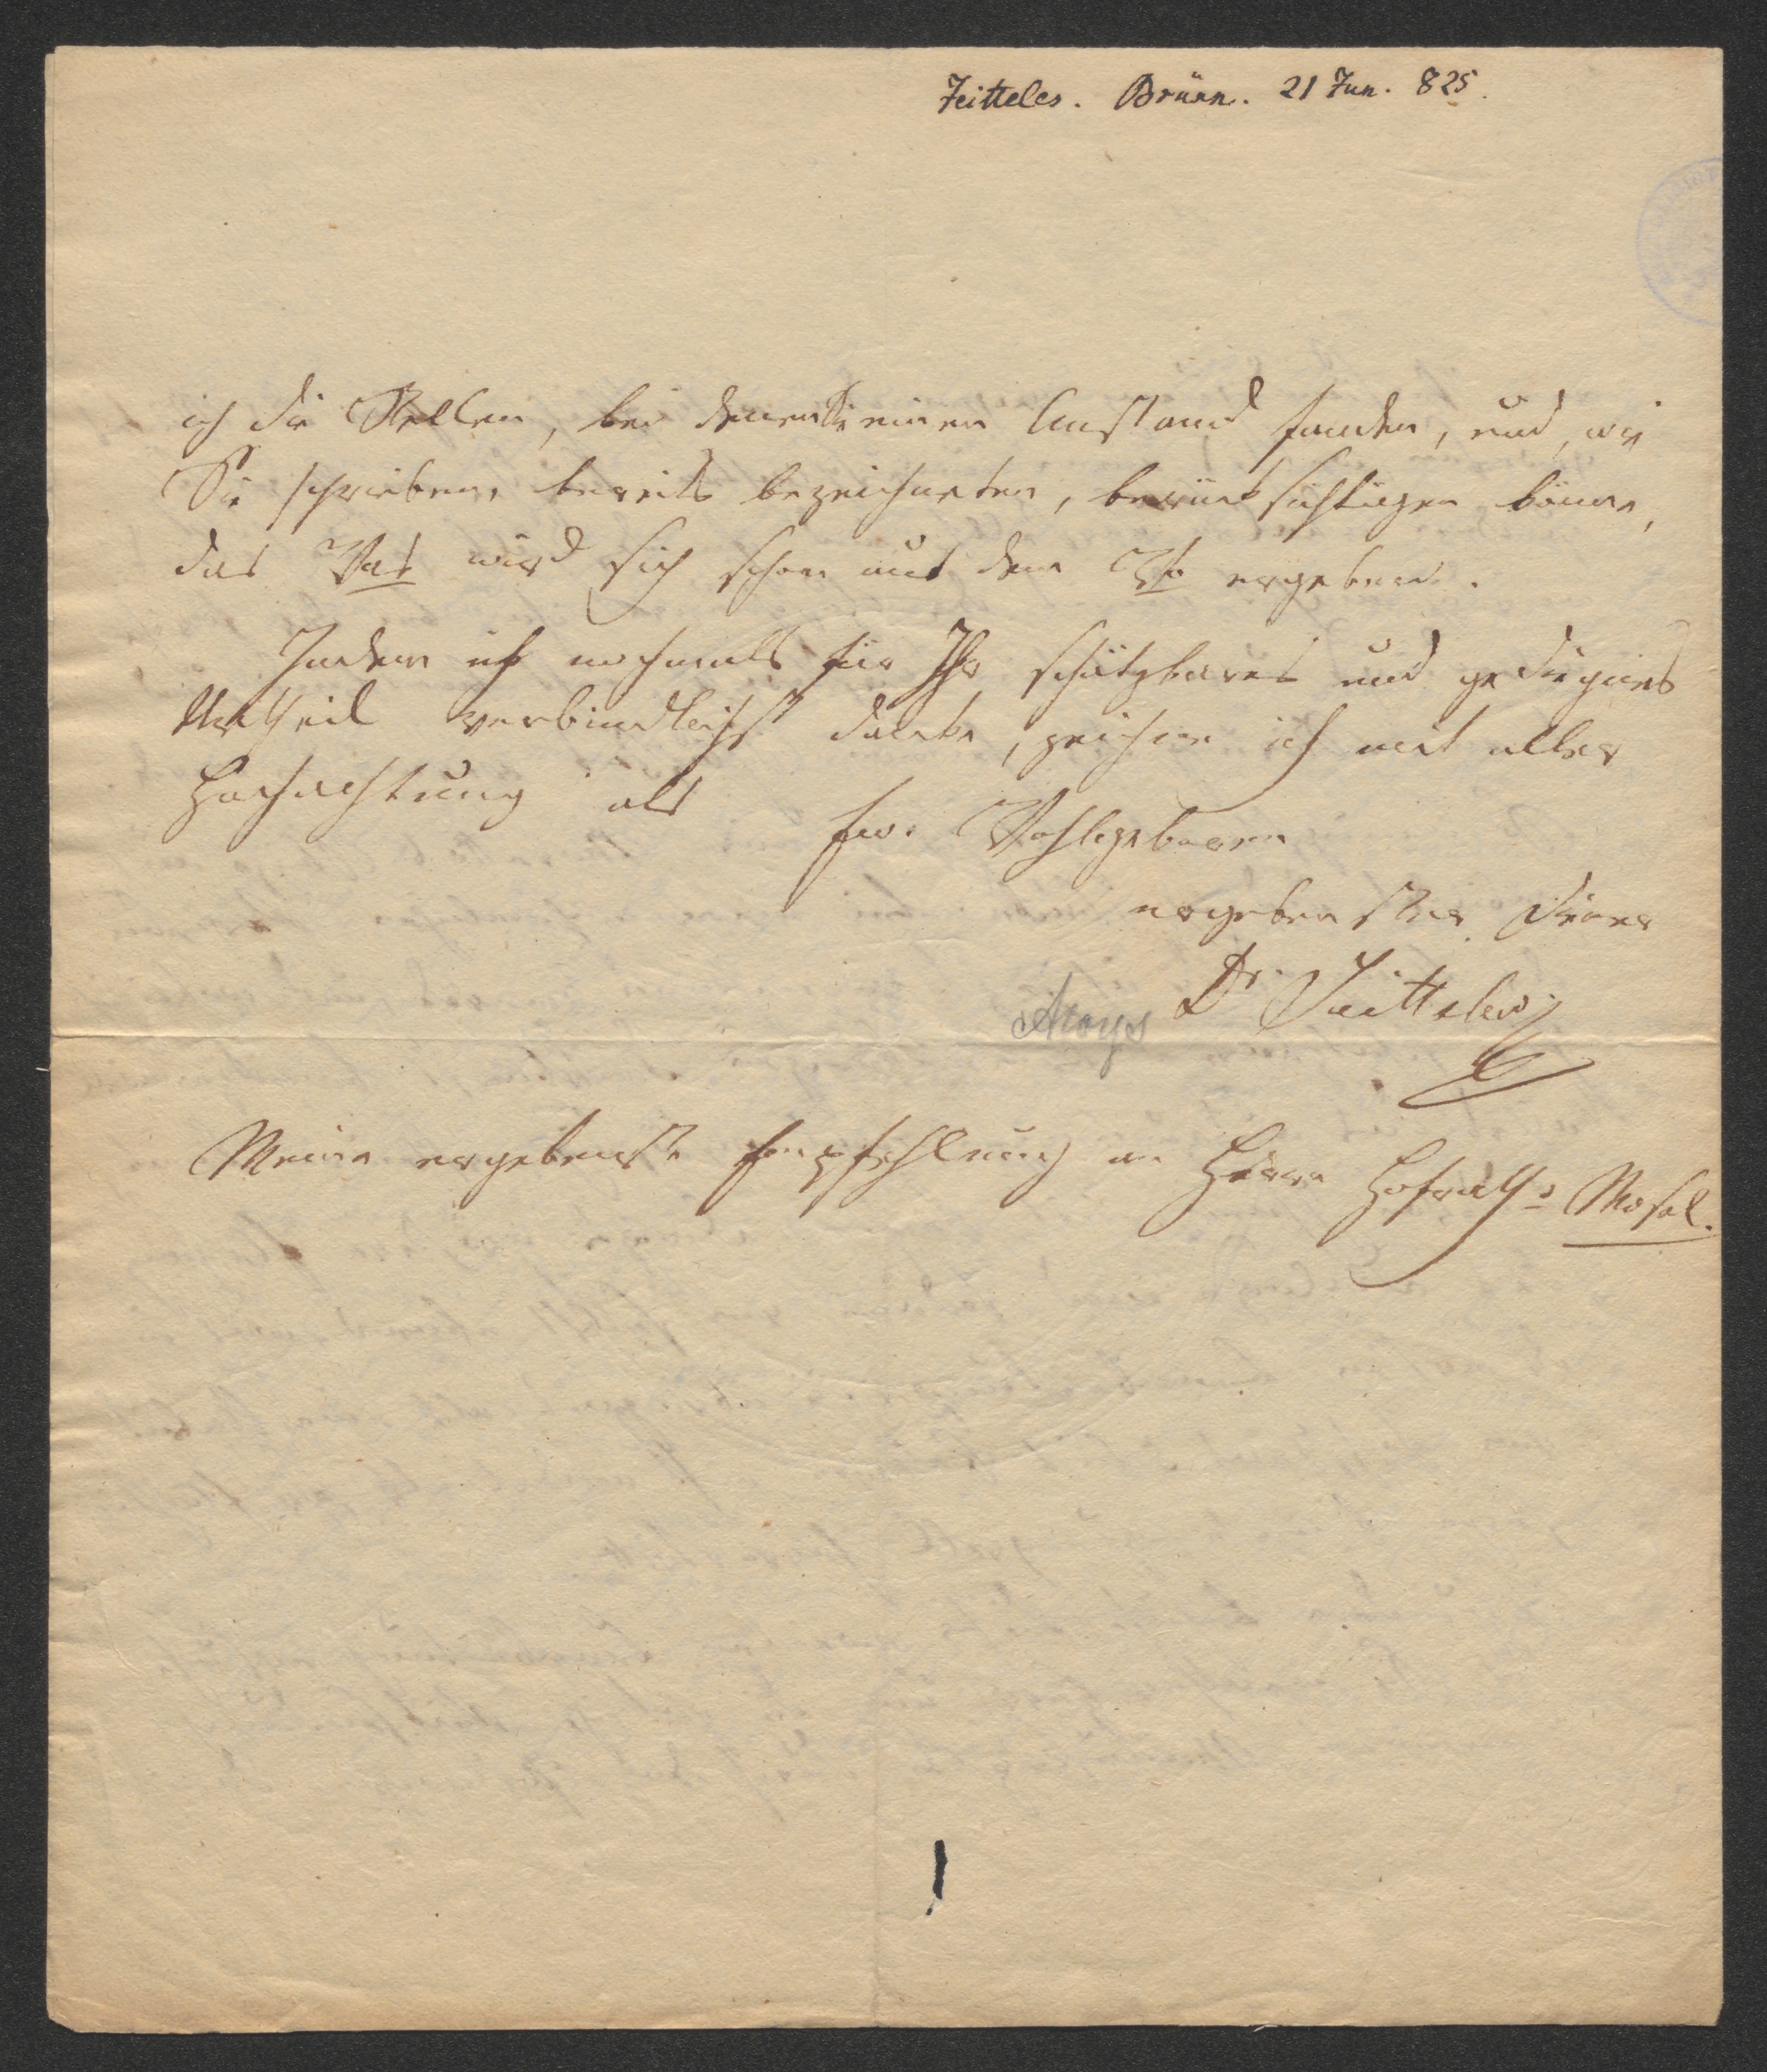 Jeitteles. Brünn. 21 Jun. 825.
ich die Stellen, bei denen Sie einen Anstand fanden, und, wie
Sie schrieben, bereits bezeichneten, berücksichtigen könne,
das Was wird sich schon aus dem Wo ergeben.
Indem ich nochmals für Ihr schätzbares und gediegnes
Urtheil verbindlichst danke, zeichne ich mit aller
Hochachtung als
Ew. Wohlgeboren
ergebenster Diener
Aloys Dr. Jeitteles
Meine ergebenste Empfehlung an Herrn Hofrath v Mosel.